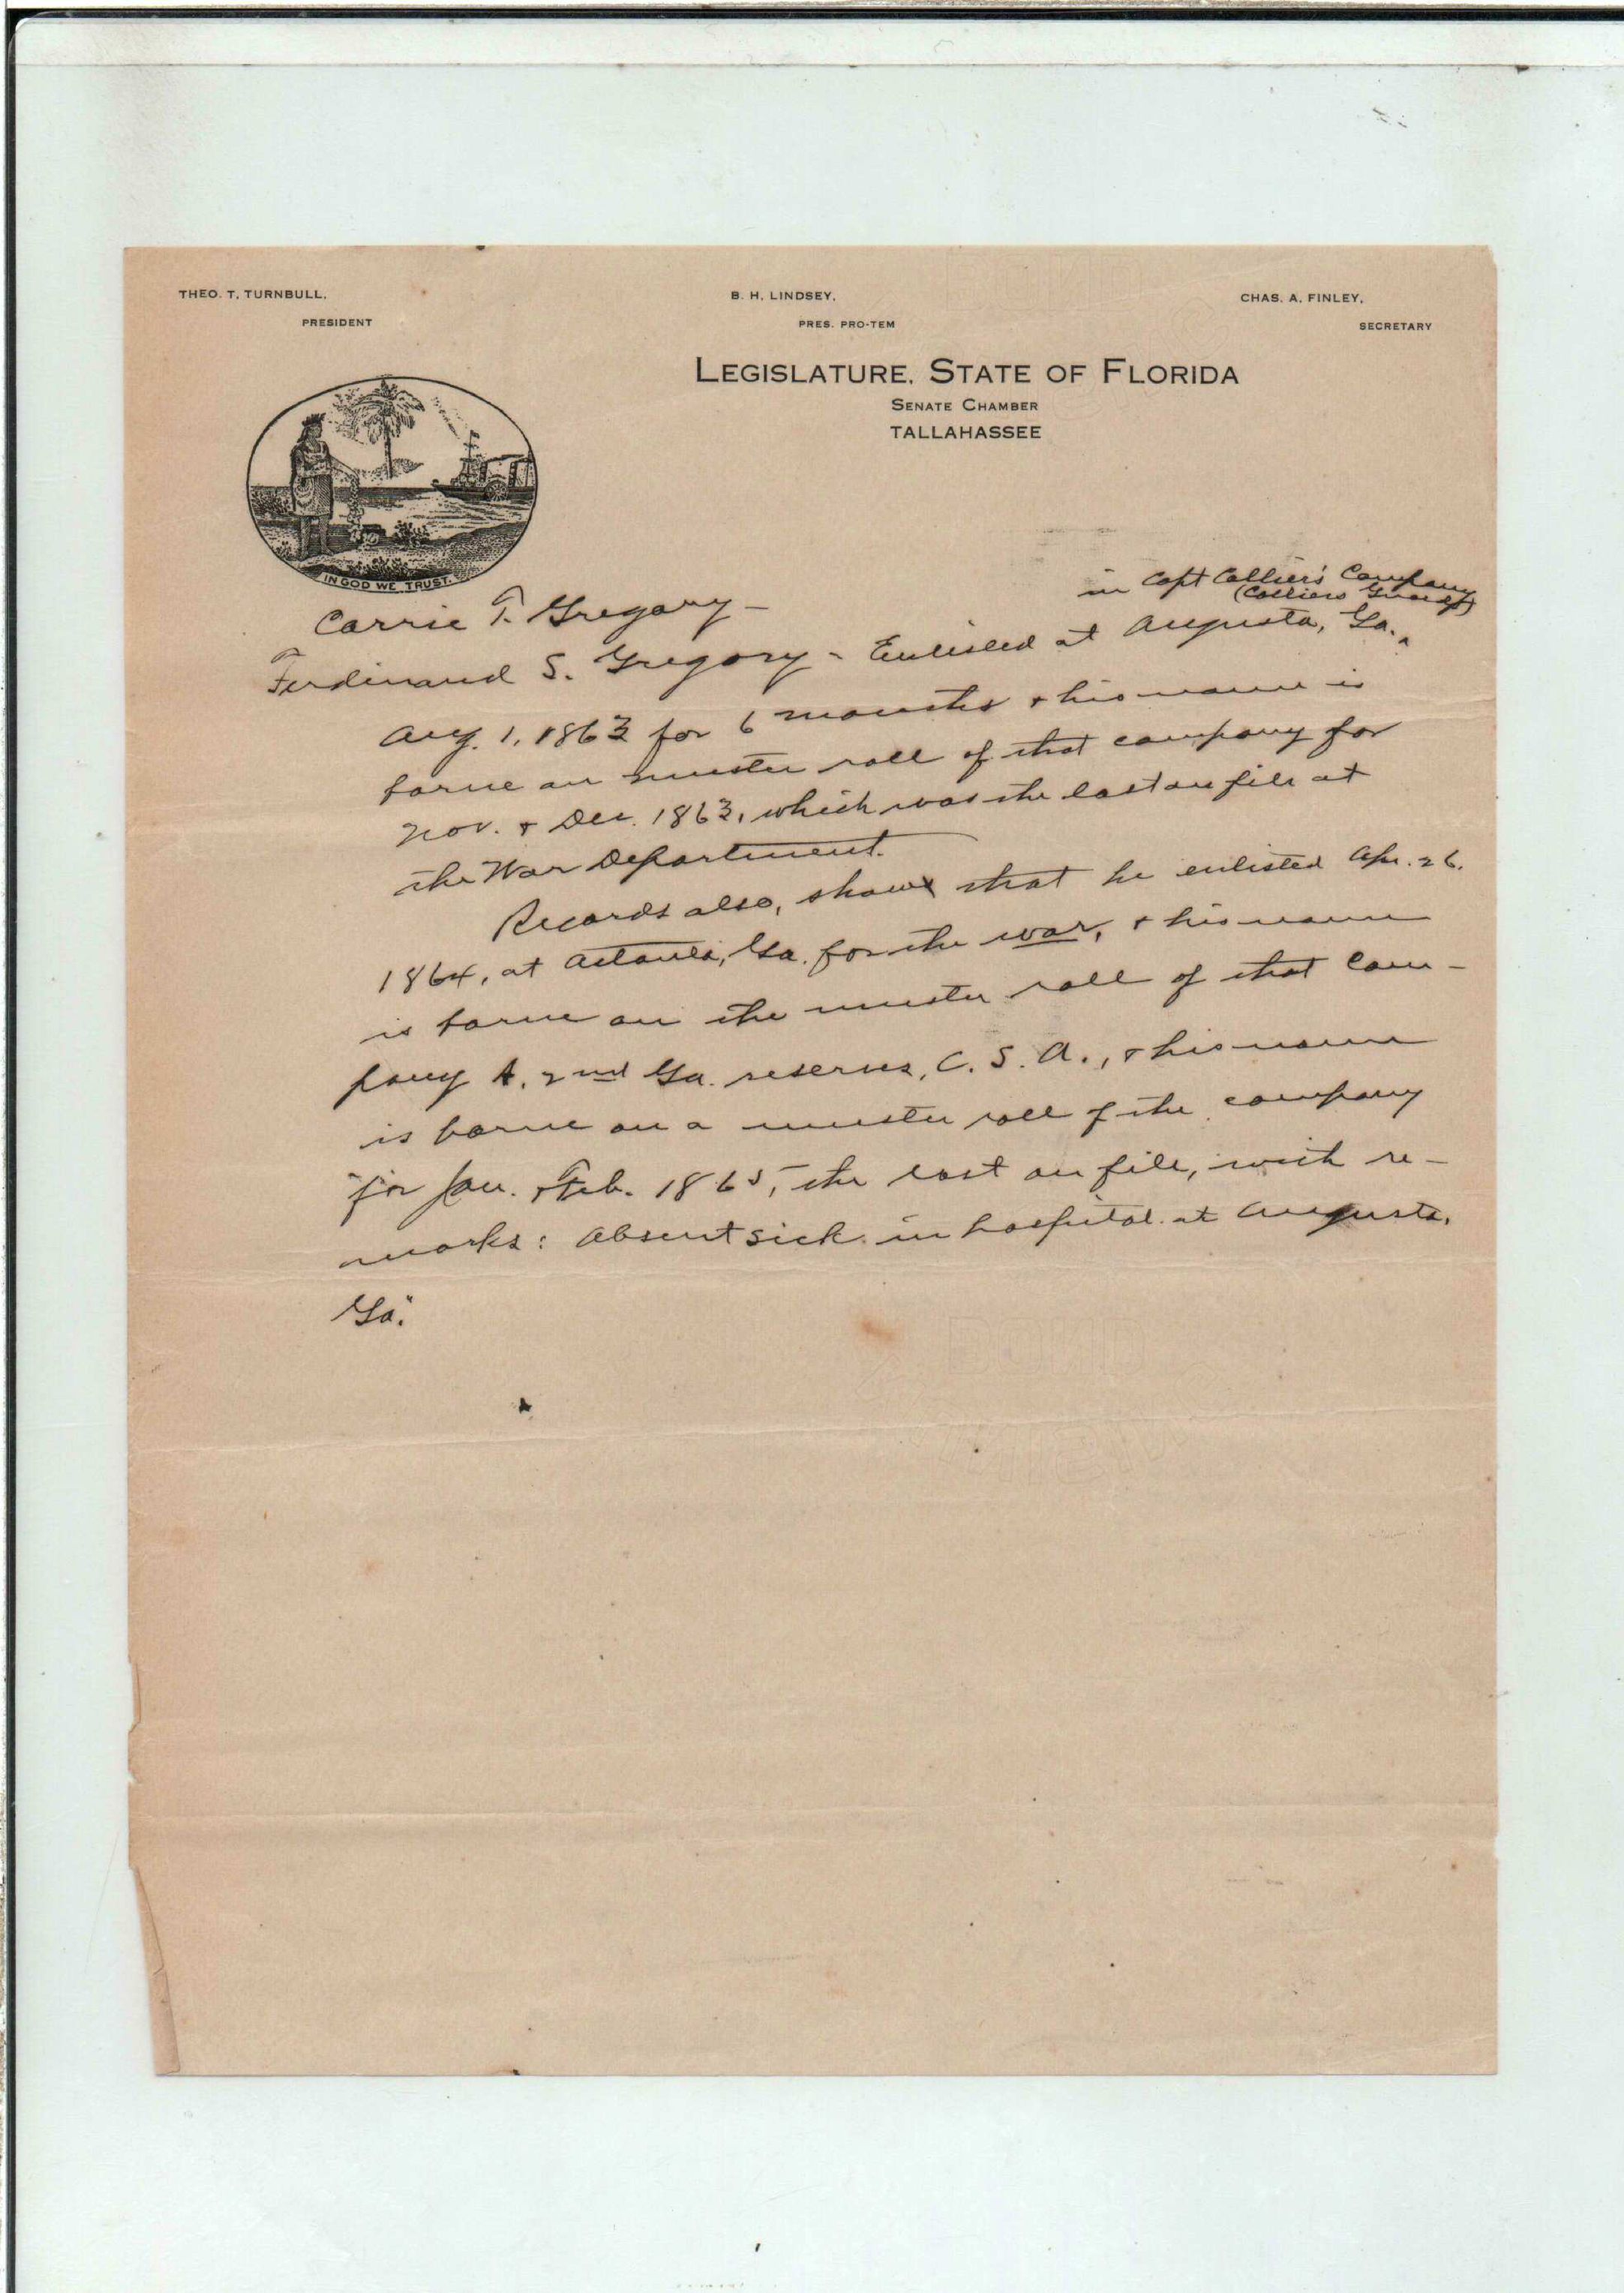 THEO. T. TURNBULL,
PRESIDENT
B. H. LINDSEY,
PRES. PRO-TEM
CHAS. A. FINLEY,
SECRETARY
LEGISLATURE, STATE OF FLORIDA
SENATE CHAMBER
TALLAHASSEE
IN GOD WE TRUST.
Carrie T. Gregory –
in Capt Collier's Company
(Colliers Guards)
Ferdinand S. Gregory - Enlisted at Augusta, Ga. ^
Aug. 1, 1863 for 6 months & his name is
borne on muster roll of that company for
Nov. & Dec. 1863, which was the last on file at
the War Department.
Records also, show that he enlisted Apr. 26,
1864, at Atlanta, Ga. for the war, & his name
is borne on the muster roll of that Com-
pany A, 2nd Ga. reserves, C. S. A., & his name
is borne on a muster roll of the company
for Jan. & Feb. 1865, the last on file, with re-
marks: Absent sick in hospital at Augusta,
Ga."
BOND